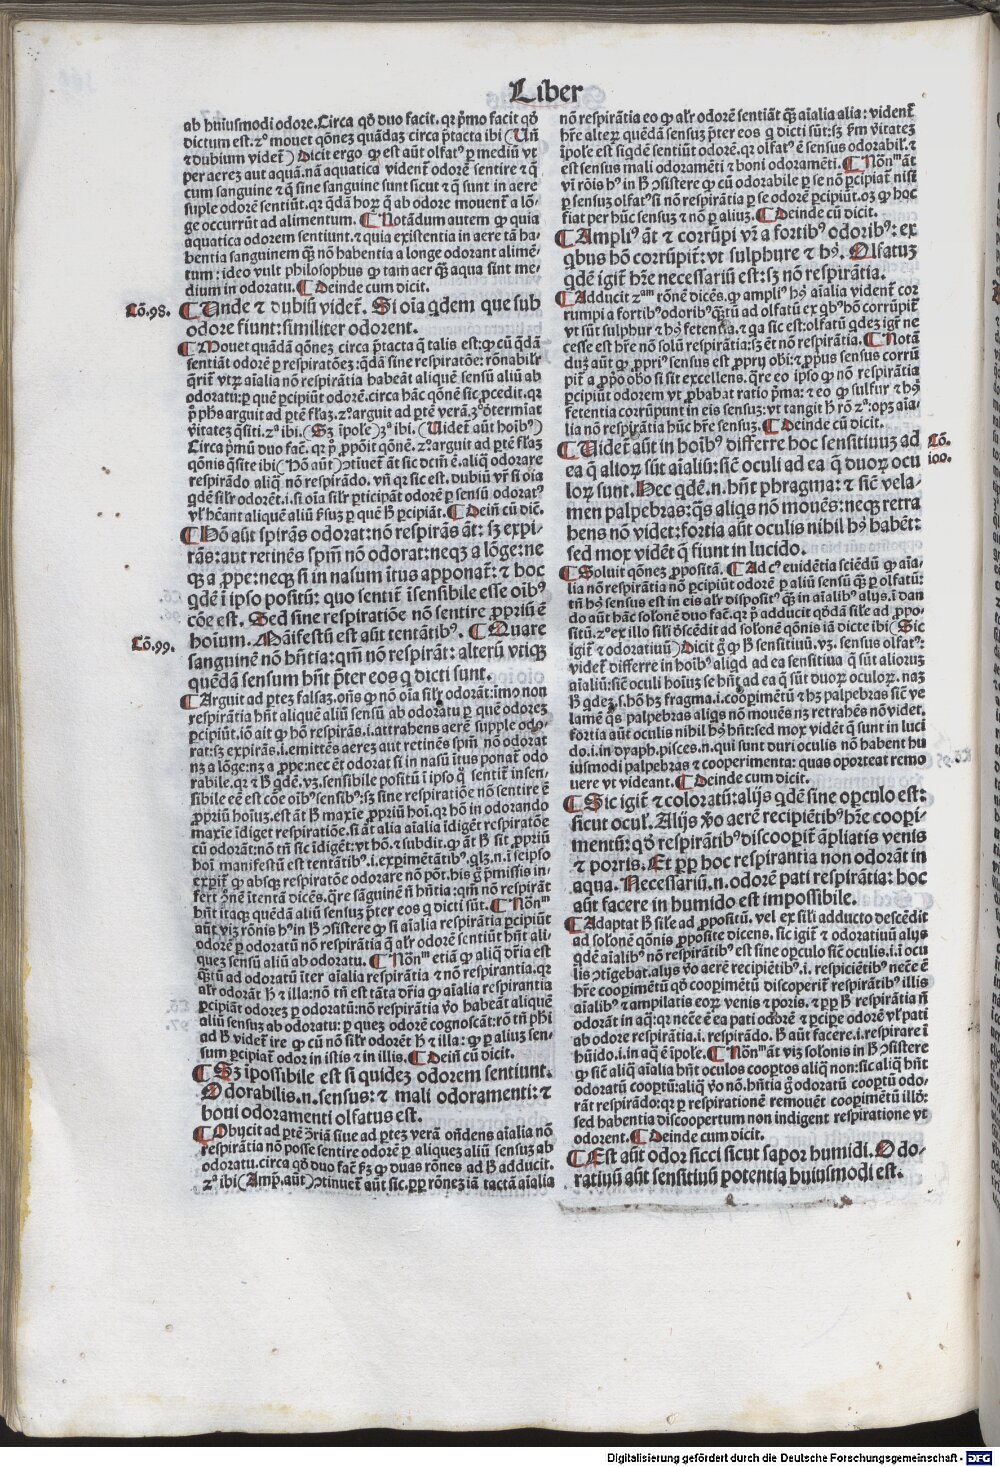 Liber
ab huiusmodi odore. Circa qđ duo facit. qr p̄mo facit qđ
dictum est. z° mouet q̄onez quādaz circa p̄tacta ibi (Uñ
⁊ dubium videt̄) Dicit ergo ꝙ est aūt olfat⁹ per mediū vt
per aerez aut aquā. nā aquatica vident̄ odorē sentire ⁊ q̄
cum sanguine ⁊ q̄ sine sanguine sunt sicut ⁊ q̄ sunt in aere
suple odorē sentiūt. qr q̄dā hoꝝ q̄ ab odore mouent̄ a lō-
ge occurrūt ad alimentum. ¶ Notādum autem ꝙ quia
aquatica odorem sentiunt. ⁊ quia existentia in aere tā ha-
bentia sanguinem q̄ȝ nō habentia a longe odorant alimē-
tum: ideo vult philosophus ꝙ tam aer q̄ȝ aqua sint me-
dium in odoratu. ¶ Deinde cum dicit.
Cō. 98.
¶ Unde ⁊ dubiū videt̄. Si oīa q̄dem que sub
odore fiunt: similiter odorent.
¶ Mouet quādā q̄onez circa p̄tacta q̄ talis est: ꝙ cū q̄dā
sentiāt odorē ꝑ respiratōez: q̄dā sine respiratōe: rōnabilr̄
q̄rit̄ vtꝝ aīalia nō respirātia habeāt aliquē sensū aliū ab
odoratu: ꝑ quē ꝑcipiūt odorē. circa hāc q̄onē sic ꝓcedit. qr
p̄ ph̄s arguit ad ꝑtē fl̄az. z° arguit ad ꝑtē verā. 3° ōtermīat
v̄itatez q̄siti. z° ibi. (Sȝ īpole) 3° ibi. (Uidet̄ aūt hoib⁹)
Circa p̄mū duo fac̄. qr p̄ ꝓpōit q̄onē. z° arguit ad ꝑtē fl̄az
q̄onis q̄site ibi (Hō aūt) ɔtinuet̄ āt sic dcm̄ ē. aliq̄ odorare
respirādo aliqȝ nō respirādo. vñ qr sic est. dubiū vr̄ si oīa
q̄dē silr̄ odorēt. i. si oīa silr̄ ꝑticipāt odorē ꝑ sensū odorat⁹
vl̓ h̄eant aliquē aliū fr̄suȝ ꝑ quē h̄ ꝑcipiāt. ¶ Deiñ cū dic̄.
¶ Hō aūt spirās odorat: nō respirās āt: sȝ expi-
rās: aut retinēs spm̄ nō odorat: neqȝ a lōge: ne
qȝ a ꝓpe: neqȝ si in nasum ītus apponat̄: ⁊ hoc
q̄dē ī ipso positū: quo sentit̄ īsensibile esse oīb⁹
cōe est. Sed sine respiratiōe nō sentire ꝓpriū ē
hoīum. Māifestū est aūt tentātib⁹. ¶ Quare
Cō. 99.
sanguinē nō hn̄tia: qm̄ nō respirāt: alterū vtiqȝ
quēdā sensum hn̄t p̄ter eos q̄ dicti sunt.
¶ Arguit ad ꝑtez falsaȝ. oñs ꝙ nō oīa silr̄ odorāt: īmo non
respirātia hn̄t aliquē aliū sensū ab odoratu ꝑ quē odorez
ꝑcipiūt. iō ait ꝙ hō respirās. i. attrahens aerē supple odo-
rat: sȝ expirās. i. emittēs aerez aut retinēs spm̄ nō odorat
nȝ a lōge: nȝ a ꝓpe: nec ēt odorat si in nasū ītus ponat̄ odo
rabile. qr ⁊ h̄ q̄dē. vȝ. sensibile positū ī ipso q̄ sentit̄ insen-
sibile eē est cōe oīb⁹ sensib⁹: sȝ sine respiratiōe nō sentire ē
ꝓpriū hoiuȝ. est āt h̄ maxīe ꝓpriū hoī. qr hō in odorando
maxīe īdiget respiratiōe. si āt alia aīalia īdigēt respiratōe
cū odorāt: nō tn̄ sic īdigēt: vt hō. ⁊ subdit. ꝙ āt h̄ sit ꝓpriū
hoī manifestū est tentātib⁹. i. expimētātib⁹. qlȝ. n. ī seipso
exꝑit̄ ꝙ absqȝ respiratōe odorare nō pōt. his ḡ p̄missis in-
fert ɔ̄nē ītentā dicēs. q̄re sāguinē n̄ hn̄tia: qm̄ nō respirāt
hn̄t itaqȝ quēdā aliū sensuȝ p̄ter eos q̄ dicti sūt. ¶ Non̄ᵐ
aūt viȝ rōnis h⁹ in h̄ ɔsistere ꝙ si aīalia respirātia ꝑcipiūt
odorē ꝑ odoratū nō respirātia q̄ alr̄ odorē sentiūt hn̄t ali-
quez sensū aliū ab odoratu. ¶ Non̄ᵐ etiā ꝙ aliq̄ dr̄ia est
q̄ȝtū ad odoratū īter aīalia respirātia ⁊ nō respirantia. qr
alr̄ odorāt h̄ ⁊ illa: nō tn̄ est tāta dr̄ia ꝙ aīalia respirantia
ꝑcipiāt odorez ꝑ odoratū: nō respirātia v̄o habeāt aliquē
aliū sensuȝ ab odoratu: ꝑ quez odorē cognoscāt: rō tn̄ phi
ad h̄ videt̄ ire ꝙ cū nō silr̄ odorēt h̄ ⁊ illa: ꝙ ꝑ aliuȝ sen-
sum ꝑcipiat̄ odor in istis ⁊ in illis. ¶ Deiñ cū dicit.
¶ Sȝ īpossibile est si quidez odorem sentiunt.
Odorabilis. n. sensus: ⁊ mali odoramenti: ⁊
boni odoramenti olfatus est.
¶ Obijcit ad ꝑtē ɔ̄riā siue ad ꝑtez verā on̄dens aīalia nō
respirātia nō posse sentire odorē ꝑ aliquez aliū sensuȝ ab
odoratu. circa qđ duo fac̄ fȝ ꝙ duas rōnes ad h̄ adducit.
z° ibi (Amp̄. aūt) ɔtinuet̄ aūt sic. ꝑꝑ rōnez iā tactā aīalia
nō respirātia eo ꝙ alr̄ odorē sentiāt q̄ȝ aīalia alia: vident̄
hr̄e alterꝝ quēdā sensuȝ p̄ter eos q̄ dicti sūt: sȝ fm̄ v̄itatez
īpole est siqdē sentiūt odorē. qr olfat⁹ ē sensus odorabil̓. ⁊
est sensus mali odoramēti ⁊ boni odoramēti. ¶ Non̄ᵐ āt
vī rōis h⁹ in h̄ ɔsistere ꝙ cū odorabile ꝑ se nō ꝑcipiat̄ nisi
ꝑ sensuȝ olfat⁹ si nō respirātia ꝑ se odorē ꝑcipiūt. oȝ ꝙ hoc
fiat per hūc sensuȝ ⁊ nō ꝑ aliuȝ. ¶ Deinde cū dicit.
¶ Ampli⁹ āt ⁊ corrūpi vr̄ a fortib⁹ odorib⁹: ex
qbus hō corrūpit̄: vt sulphure ⁊ h⁹. Olfatuȝ
q̄dē igit̄ hr̄e necessariū est: sȝ nō respirātia.
¶ Adducit zᵃᵐ rōnē dicēs. ꝙ ampli⁹ h⁹ aīalia vident̄ cor
rumpi a fortib⁹ odorib⁹ q̄ȝtū ad olfatū ex qb⁹ hō corrūpit̄
vt sūt sulphur ⁊ h⁹ fetentia. ⁊ qa sic est: olfatū q̄dez igr̄ ne
cesse est hr̄e nō solū respirātia: sȝ ēt nō respirātia. ¶ Notā
duȝ aūt ꝙ ꝓpri⁹ sensus est ꝓprij obī: ⁊ ꝓp̄us sensus corrū
pit̄ a ꝓp̄o obō si sit excellens. q̄re eo ipso ꝙ nō respirātia
ꝑcipiūt odorem vt ꝓbabat ratio p̄ma: ⁊ eo ꝙ sulfur ⁊ h⁹
fetentia corrūpunt in eis sensuȝ: vt tangit h̄ rō z°: opȝ aīa-
lia nō respirātia hūc hr̄e sensuȝ. ¶ Deinde cū dicit.
Cō. 100.
¶ Uidet̄ aūt in hoīb⁹ differre hoc sensitiuuȝ ad
ea q̄ alioꝝ sūt aīaliū: sic̄ oculi ad ea q̄ duroꝝ ocu
loꝝ sunt. Hec q̄dē. n. hn̄t phragma: ⁊ sic̄ vela-
men palpebras: q̄s aliq̄s nō mouēs: neqȝ retra
hens nō videt: fortia aūt oculis nihil h⁹ habēt:
sed mox vidēt q̄ fiunt in lucido.
¶ Soluit q̄onez ꝓpositā. ¶ Ad c⁹ euidētia sciēdū ꝙ aīa-
lia nō respirātia nō ꝑcipiūt odorē ꝑ aliū sensū q̄ȝ ꝑ olfatū:
tn̄ h⁹ sensus est in eis alr̄ disposit⁹ q̄ȝ in aīalib⁹ alijs. ī dan
do aūt hāc solonē duo fac̄. qr p̄ adducit q̄ddā sile ad ꝓpo-
sitū. z° ex illo sili d̄scēdit ad solonē q̄onis iā dicte ibi (Sic
igit̄ ⁊ odoratiuū) Dicit ḡ ꝙ h̄ sensitiuū. vȝ. sensus olfat⁹:
videt̄ differre in hoib⁹ aliqd ad ea sensitiua q̄ sūt alioruȝ
aīaliū: sic̄ oculi hoīuȝ se hn̄t ad ea q̄ sūt duroꝝ oculoꝝ. naȝ
h̄ q̄deȝ. s. hō hȝ fragma. i. coopimētū ⁊ hȝ palpebras sic̄ ve
lamē q̄s palpebras aliqs nō mouēs nȝ retrahēs nō videt.
fortia aūt oculis nihil h⁹ hn̄t: sed mox vidēt q̄ sunt in luci
do. i. in dyaph. pisces. n. qui sunt duri oculis nō habent hu
iusmodi palpebras ⁊ cooperimenta: quas oporteat remo
uere vt videant. ¶ Deinde cum dicit.
¶ Sic igit̄ ⁊ coloratū: alijs q̄dē sine oꝑculo est:
sicut ocul̓. Alijs v̄o aerē recipiētib⁹ hr̄e coopi-
mentū: qđ respirātib⁹ discoopit̄ āpliatis venis
⁊ porris. Et ꝑꝑ hoc respirantia non odorāt in
aqua. Necessariū. n. odorē pati respirātia: hoc
aūt facere in humido est impossibile.
¶ Adaptat h̄ sile ad ꝓpositū. vel ex sili adducto descēdit
ad solonē q̄onis ꝓposite dicens. sic igit̄ ⁊ odoratiuū alijs
q̄dē aīalib⁹ nō respirātib⁹ est sine oꝑculo sic̄ oculis. i. ī ocu
lis ɔtigebat. alijs v̄o aerē recipiētib⁹. i. respiciētib⁹ nec̄e ē
hr̄e coopimētū qđ coopimētū discoperit̄ respirātib⁹ illis
aīalib⁹ ⁊ ampilatis eoꝝ venis ⁊ poris. ⁊ ꝑꝑ h̄ respirātia n̄
odorāt in aq̄: qr nec̄e ē ea pati odorē ⁊ ꝑcipe odorē vl̓ pati
ab odore respirātia. i. respirādo. h̄ aūt facere. i. respirare ī
hūido. i. in aq̄ ē īpole. ¶ Non̄ᵐ āt viȝ solonis in h̄ ɔsistere
ꝙ sic̄ aliq̄ aīalia hn̄t oculos cooptos aliq̄ non: sic aliq̄ hn̄t
odoratū cooptū: aliq̄ v̄o nō. hn̄tia ḡ odoratū cooptū odo-
rāt respirādo: qr ꝑ respirationē remouēt coopimētū illō:
sed habentia discoopertum non indigent respiratione vt
odorent. ¶ Deinde cum dicit.
¶ Est aūt odor sicci sicut sapor humidi. Odo-
ratiuū aūt sensitiuū potentia huiusmodi est.
Digitalisierung gefördert durch die Deutsche Forschungsgemeinschaft - DFG